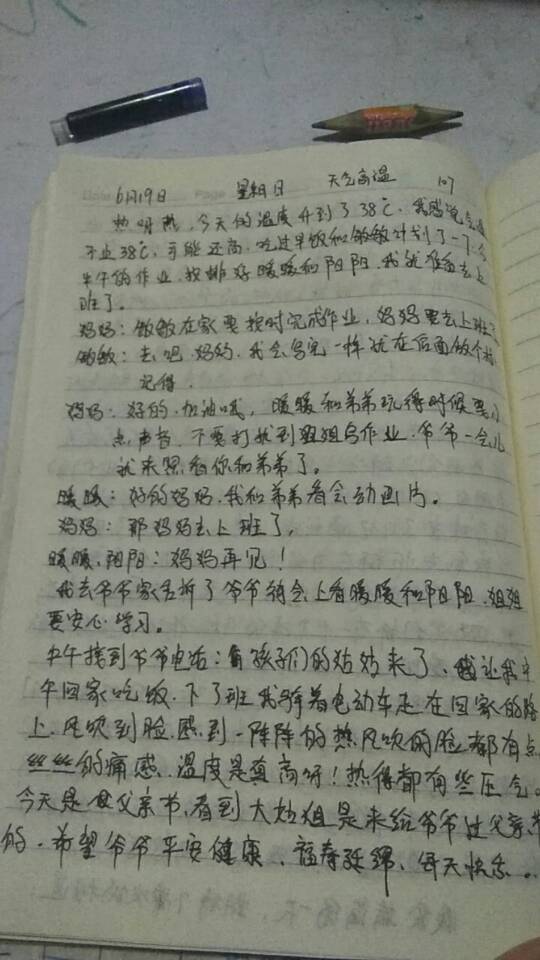 6月19日 星期日 天气高温 107
热啊热，今天的温度升到了38℃，我感觉气温
不止38℃，可能还高。吃过早饭和敏敏计划了一下今
上午的作业，安排好暖暖和阳阳，我就准备去上
班了。
妈妈：敏敏在家要按时完成作业，妈妈要去上班
敏敏：去吧妈妈，我会写完一样就在后面做个标
记得．
妈妈：好的，加油哦，暖暖和弟弟玩得时候要小
点声音，不要打扰到姐姐写作业，爷爷一会儿
就来照看你和弟弟了。
暖暖：好的妈妈，我和弟弟看会动画片。
妈妈：那妈妈去上班了，
暖暖、阳阳：妈妈再见！
我去爷爷家告诉了爷爷待会上看暖暖和阳阳，姐姐
要安心学习。
中午接到爷爷电话：有孩子们的姑姑来了，让我中
午回家吃饭．下了班我骑着电动车走在回家的路
上，风吹到脸感到一阵阵的热，风吹的脸都有点
丝丝的痛感，温度是真高呀！热得都有些压气。
今天是父亲节，看到大姑姐是来给爷爷过父亲节
的．希望爷爷平安健康、福寿延绵、每天快乐。